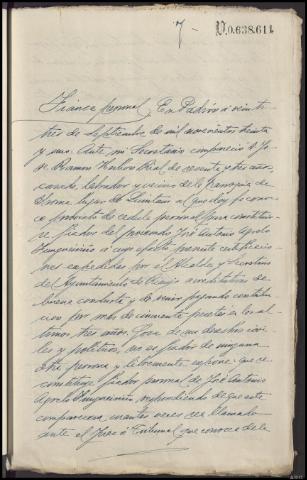 7
V.0.638.611
Fianza personal, En Padrón á veinte
tres de Septiembre de mil novecientos treinta
y uno. Ante mi Secretario compareció D. Jo-
sé Ramon de sesenta y tres años,
casado, labrador y vecino de la parroquia de
lugar de Quintáns á quien doy fe conoz-
co provisto de cedula personal, para constituir-
se fiador del procesado José Antonio Agrelo
á cuyo efecto presenta certificacio-
nes expedidas por el Alcalde y Secretario
del Ayuntamiento de acreditativas de
buena conducta y de venir pagando contribu-
cion por más de cincuenta pesetas en los ul-
timos tres años. Goza de sus derechos civi-
les y politicos, no es fiador de ninguna
otra persona y libremente expone: que se
constituye fiador personal de José Antonio
Agrelo respondiendo de que este
comparecerá, cuantas veces sea llamado
ante el Juez ó Tribunal que conozca de la